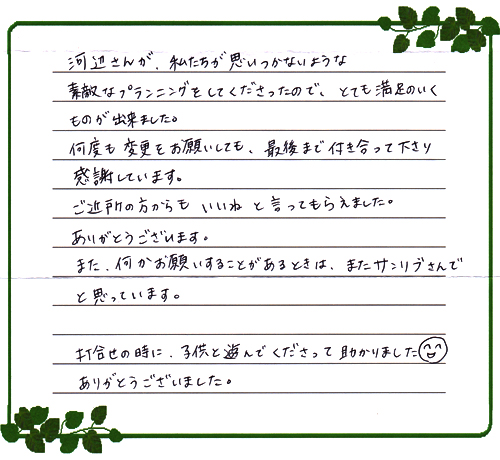 河辺さんが、私たちが思いつかないような
素敵なプランニングをしてくださったので、とても満足のいく
ものが出来ました。
何度も変更をお願いしても、最後まで付き合って下さり
感謝しています。
ご近所の方からも いいね と言ってもらえました。
ありがとうございます。
また、何かお願いすることがあるときは、またサンリブさんで
と思っています。
打合せの時に、子供と遊んでくださって助かりました
ありがとうございました。